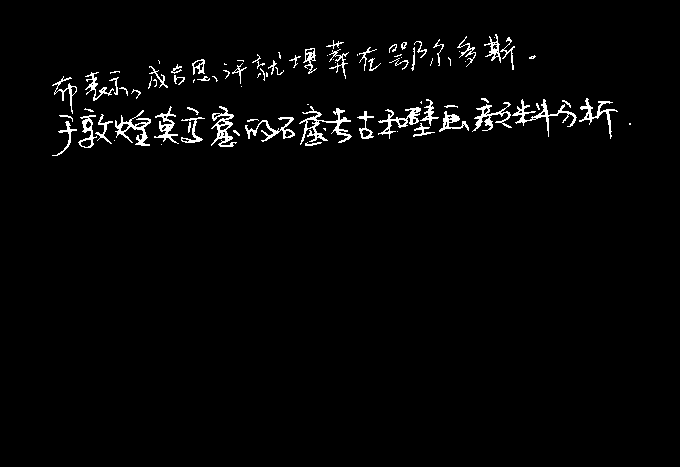 布表示，成吉思汗就埋葬在鄂尔多斯。
于敦煌莫高窟的石窟考古和壁画颜料分析.